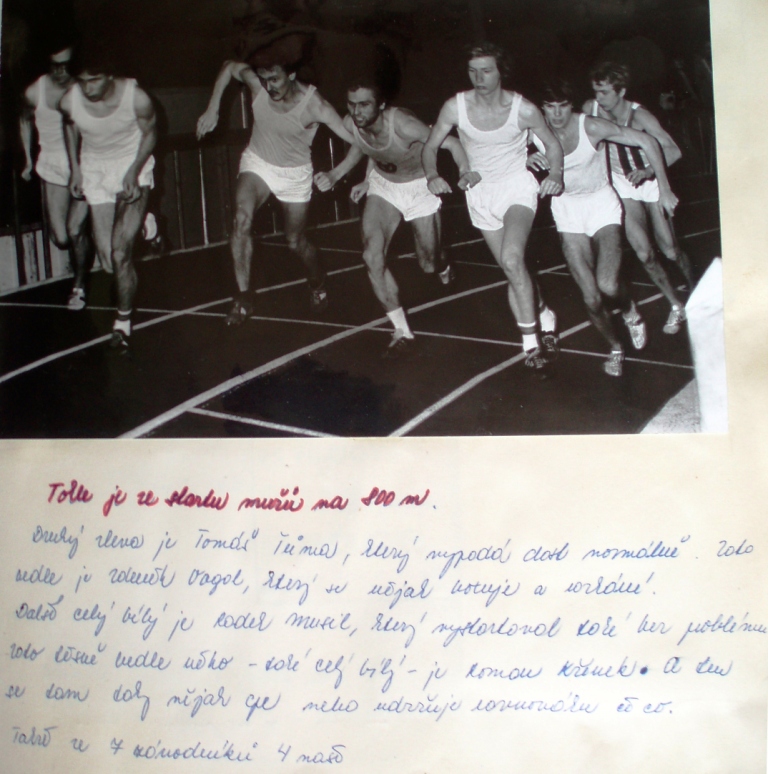 Tohle je ze startu mužů na 800 m.
Druhý zleva je Tomáš Tůma, který vypadá dost normálně. Zato
vedle je Zdeněk Vágol, který se nějak hotuje a
Další celý bílý je Radek Musil, který vystartoval také bez problému
Zato těsně vedle něho - také celý bílý - je Roman Křenek. A ten
se tam taky nějak nebo udržuje rovnováhu či co.
Takže ze 7 závodníků 4 naši